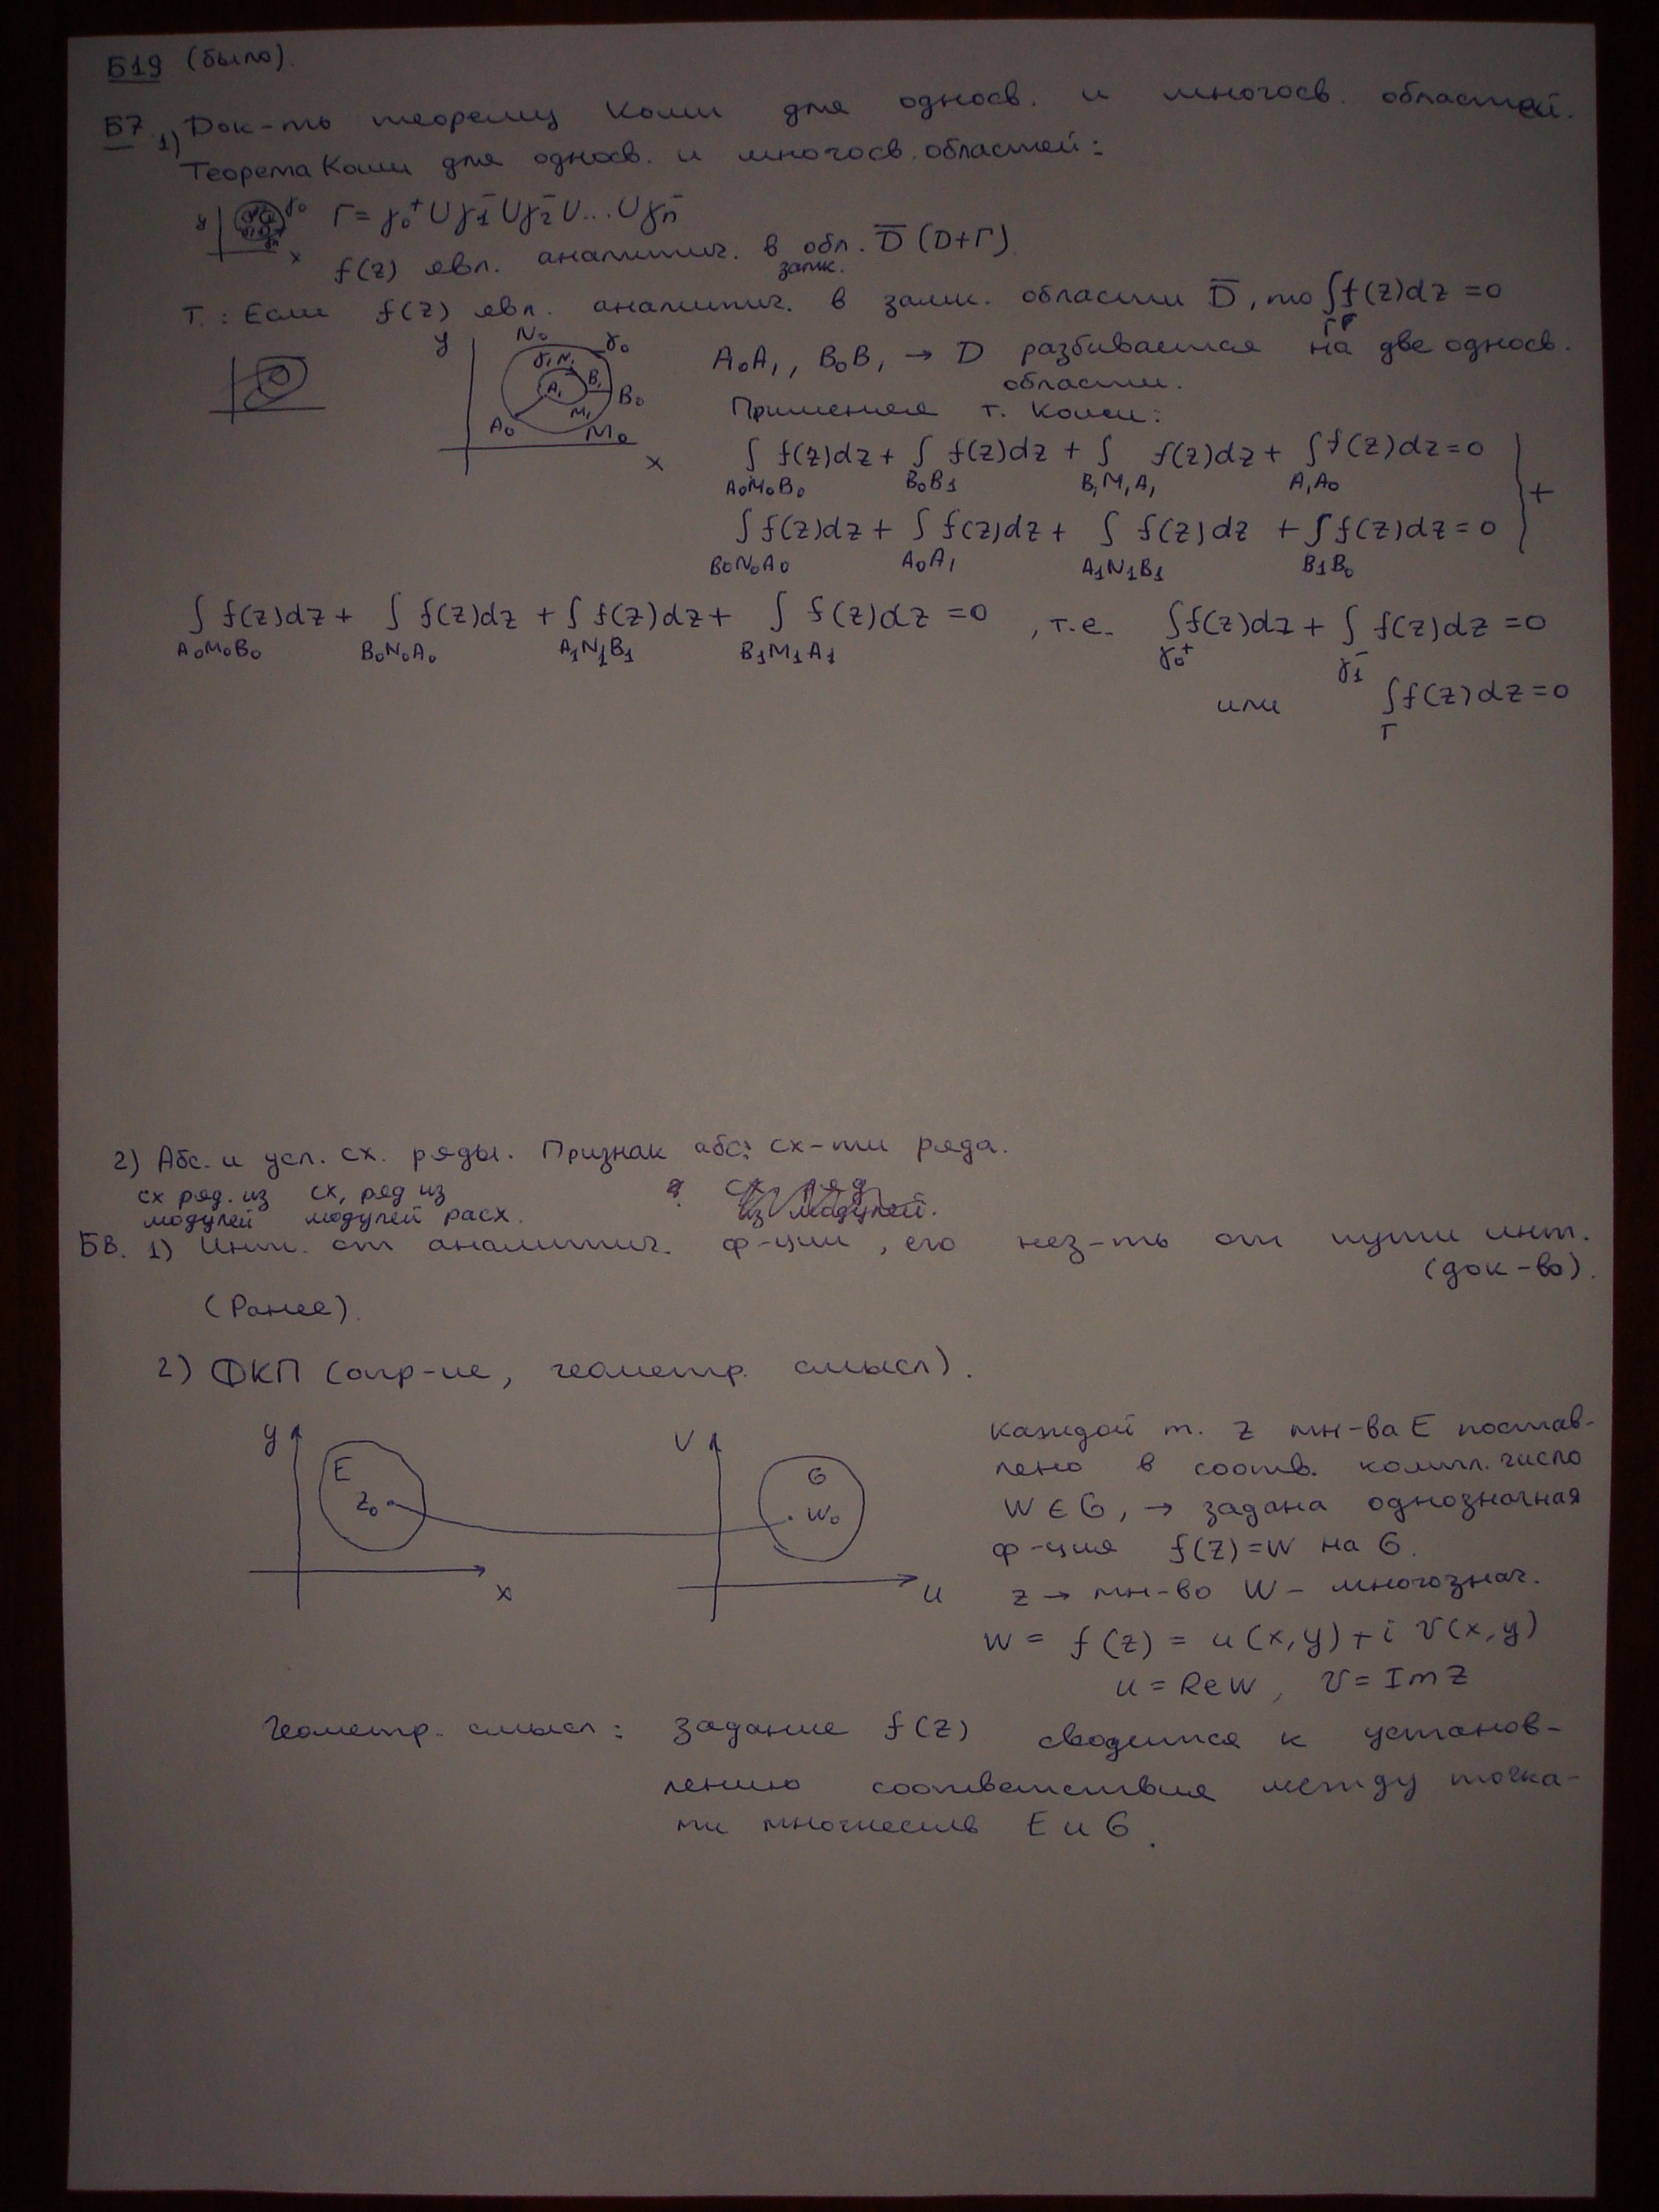 Б19 (было).
Б7. 1) Док-ть теорему Коши для односв. и многосв. областей.
Теорема Коши для односв. и многосв. областей:
y x γ₀ Γ = γ₀⁺ ∪ γ₁⁻ ∪ γ₂⁻ ∪ ... ∪ γn⁻
f(z) явл. аналитич. в обл. D̅ (D+Γ).
замк.
Т.: Если f(z) явл. аналитич. в замк. области D̅, то ∫f(z)dz = 0
Γ
y N₀ γ₀ γ₁ N₁ A₁ B₁ B₀ M₁ A₀ M₀ x
A₀A₁, B₀B₁ → D разбивается на две односв.
области.
Применяя т. Коши:
∫ f(z)dz + ∫ f(z)dz + ∫ f(z)dz + ∫ f(z)dz = 0
A₀M₀B₀ B₀B₁ B₁M₁A₁ A₁A₀
+
∫ f(z)dz + ∫ f(z)dz + ∫ f(z)dz + ∫ f(z)dz = 0
B₀N₀A₀ A₀A₁ A₁N₁B₁ B₁B₀
∫ f(z)dz + ∫ f(z)dz + ∫ f(z)dz + ∫ f(z)dz = 0 , т.е. ∫ f(z)dz + ∫ f(z)dz = 0
A₀M₀B₀ B₀N₀A₀ A₁N₁B₁ B₁M₁A₁ γ₀⁺ γ₁⁻
или ∫ f(z)dz = 0
Γ
2) Абс. и усл. сх. ряды. Признак абс. сх-ти ряда.
сх ряд. из сх, ряд из ?
модулей модулей расх.
Б8. 1) Инт. от аналитич. ф-ции, его нез-ть от пути инт.
(док-во).
(Ранее).
2) ФКП (опр-ие, геометр. смысл).
y E z₀ x
V G W₀ u
каждой т. z мн-ва E постав-
лено в соотв. компл. число
W ∈ G, → задана однозначная
ф-ция f(z)=W на G.
z → мн-во W – многознач.
w = f(z) = u(x,y) + i v(x,y)
u = Re w, v = Im z
Геометр. смысл: задание f(z) сводится к установ-
лению соответствия между точка-
ми множеств E и G.